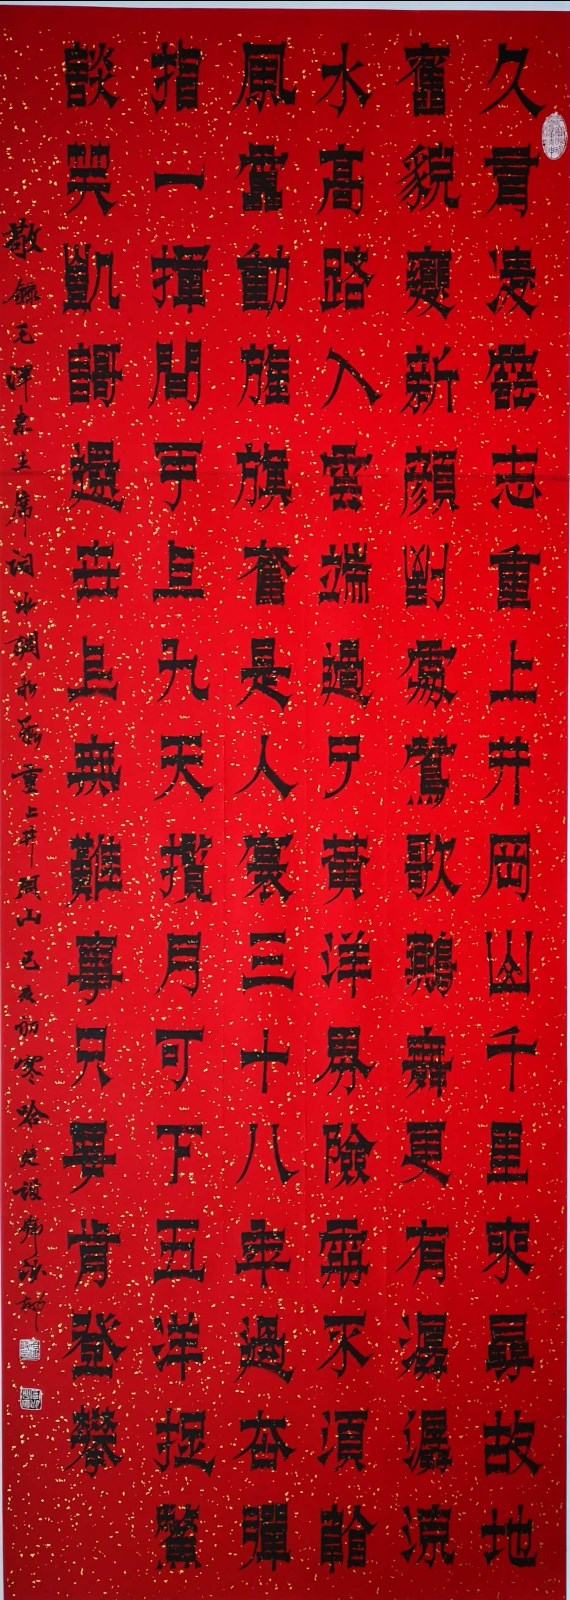 久有凌雲志重上井岡山千里來尋故地
舊貌變新顏到處鶯歌燕舞更有潺潺流
水高路入雲端過了黃洋界險處不須看
風雷動旌旗奮是人寰三十八年過去彈
指一揮間可上九天攬月可下五洋捉鱉
談笑凱謌還世上無難事只要肯登攀
敬錄毛澤東主席詞水調歌頭重上井岡山己亥初寒